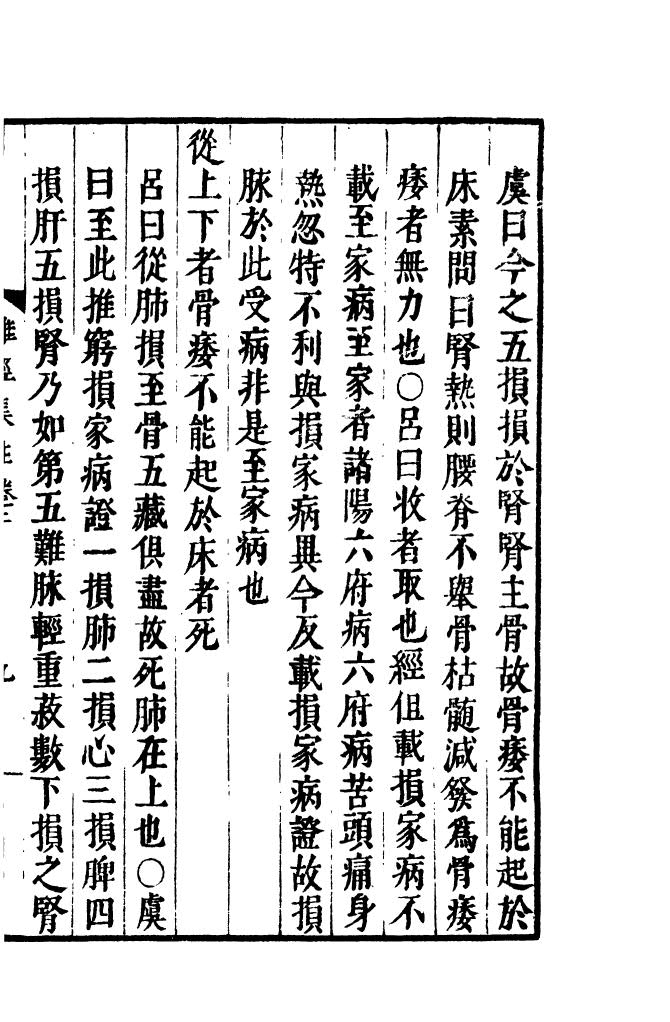 虞曰今之五損損於腎腎主骨故骨痿不能起於
床素問曰腎熱則腰脊不舉骨枯髄減發爲骨痿
痿者無力也○呂曰收者取也經但載損家病不
載至家病至家者諸陽六府病六府病苦頭痛身
熱忽特不利與損家病異今反載損家病證故損
脉於此受病非是至家病也
從上下者骨痿不能起於床者死
呂曰從肺損至骨五藏俱盡故死肺在上也○虞
曰至此推窮損家病證一損肺二損心三損脾四
損肝五損腎乃如第五難脉輕重菽數下損之腎
難經集註卷二
九